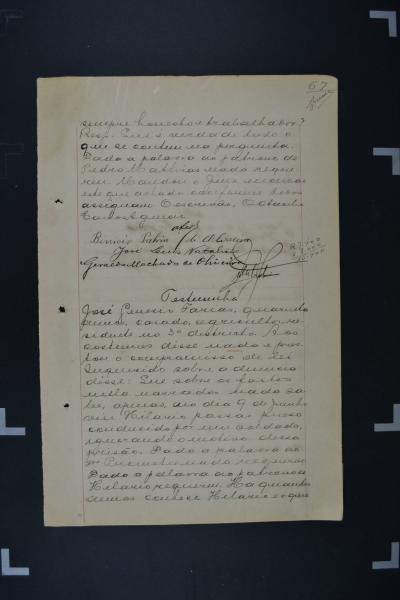 67
sempre honesto e trabalhador?
Resp. Que é verdade tudo o
que se contem na pergunta.
Dado a palavra ao patrono de
Pedro Mathias nada reque
reu. Mandou o Juiz encerrar
este que achado conforme
assignam O escrivão,
José Luiz
Geraldo Machado de Oliveira
Testemunha
José Generio Farias, quarenta
annos, casado, agricultor, re-
sidente no 3º districto. Aos
costumes disse nada e pres-
tou o compromisso de lei
Inquirido sobre a denuncia
disse: Que sobre os factos
nella narrados nada sa-
be, apenas, no dia 9 de Junho
viu Hilario passar preso
conduzido por um soldado,
ignorando o motivo dessa
prisão. Dado a palavra ao
Dr. Promotor nada requereu
Dado a palavra ao patrono de
Hilario requereu. Ha quantos
annos conhece Hilario e que